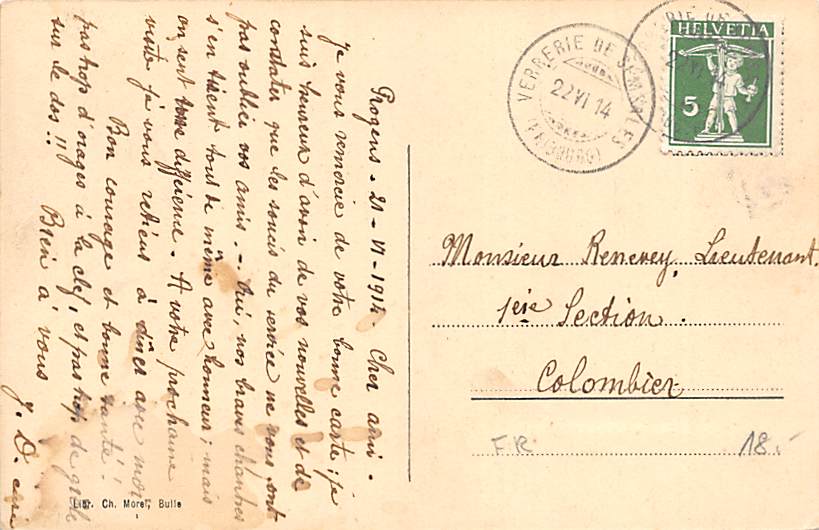 Progens - 21-VI-1914. Cher ami.
je vous remercie de votre bonne carte ; je
suis heureux d'avoir de vos nouvelles et de
constater que les soucis du service ne vous ont
pas oublier vos amis. - Oui, nos braves chantres
s'en tirent tout de même avec honneur ; mais
on sent votre différence. A votre prochaine
visite je vous retiens à dîner avec moi -
Bon courage et bonne santé !
pas trop d'orages à la clef, et pas trop de grêle
sur le dos !! Bien à vous
J. D. curé
Libr. Ch. Morel, Bulle
VERRERIE DE SEMSALES
22 VI 14
(FRIBOURG)
HELVETIA
5
Monsieur Renevey, Lieutenant,
1ère Section.
Colombier
FR
18.-